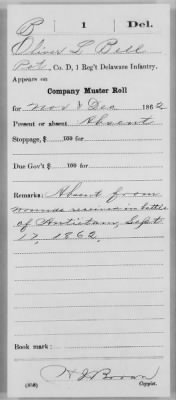 B 1 Del.
Oliver L Bell
Pvt, Co. D, 1 Reg't Delaware Infantry.
Appears on
Company Muster Roll
for Nov & Dec, 1862
Present or absent Absent
Stoppage, $ 100 for
Due Gov't $ 100 for
Remarks: Absent from
wounds received in battle
of Antietam, Sept
17, 1862.
Book mark:
H J Brown
(358) Copyist.